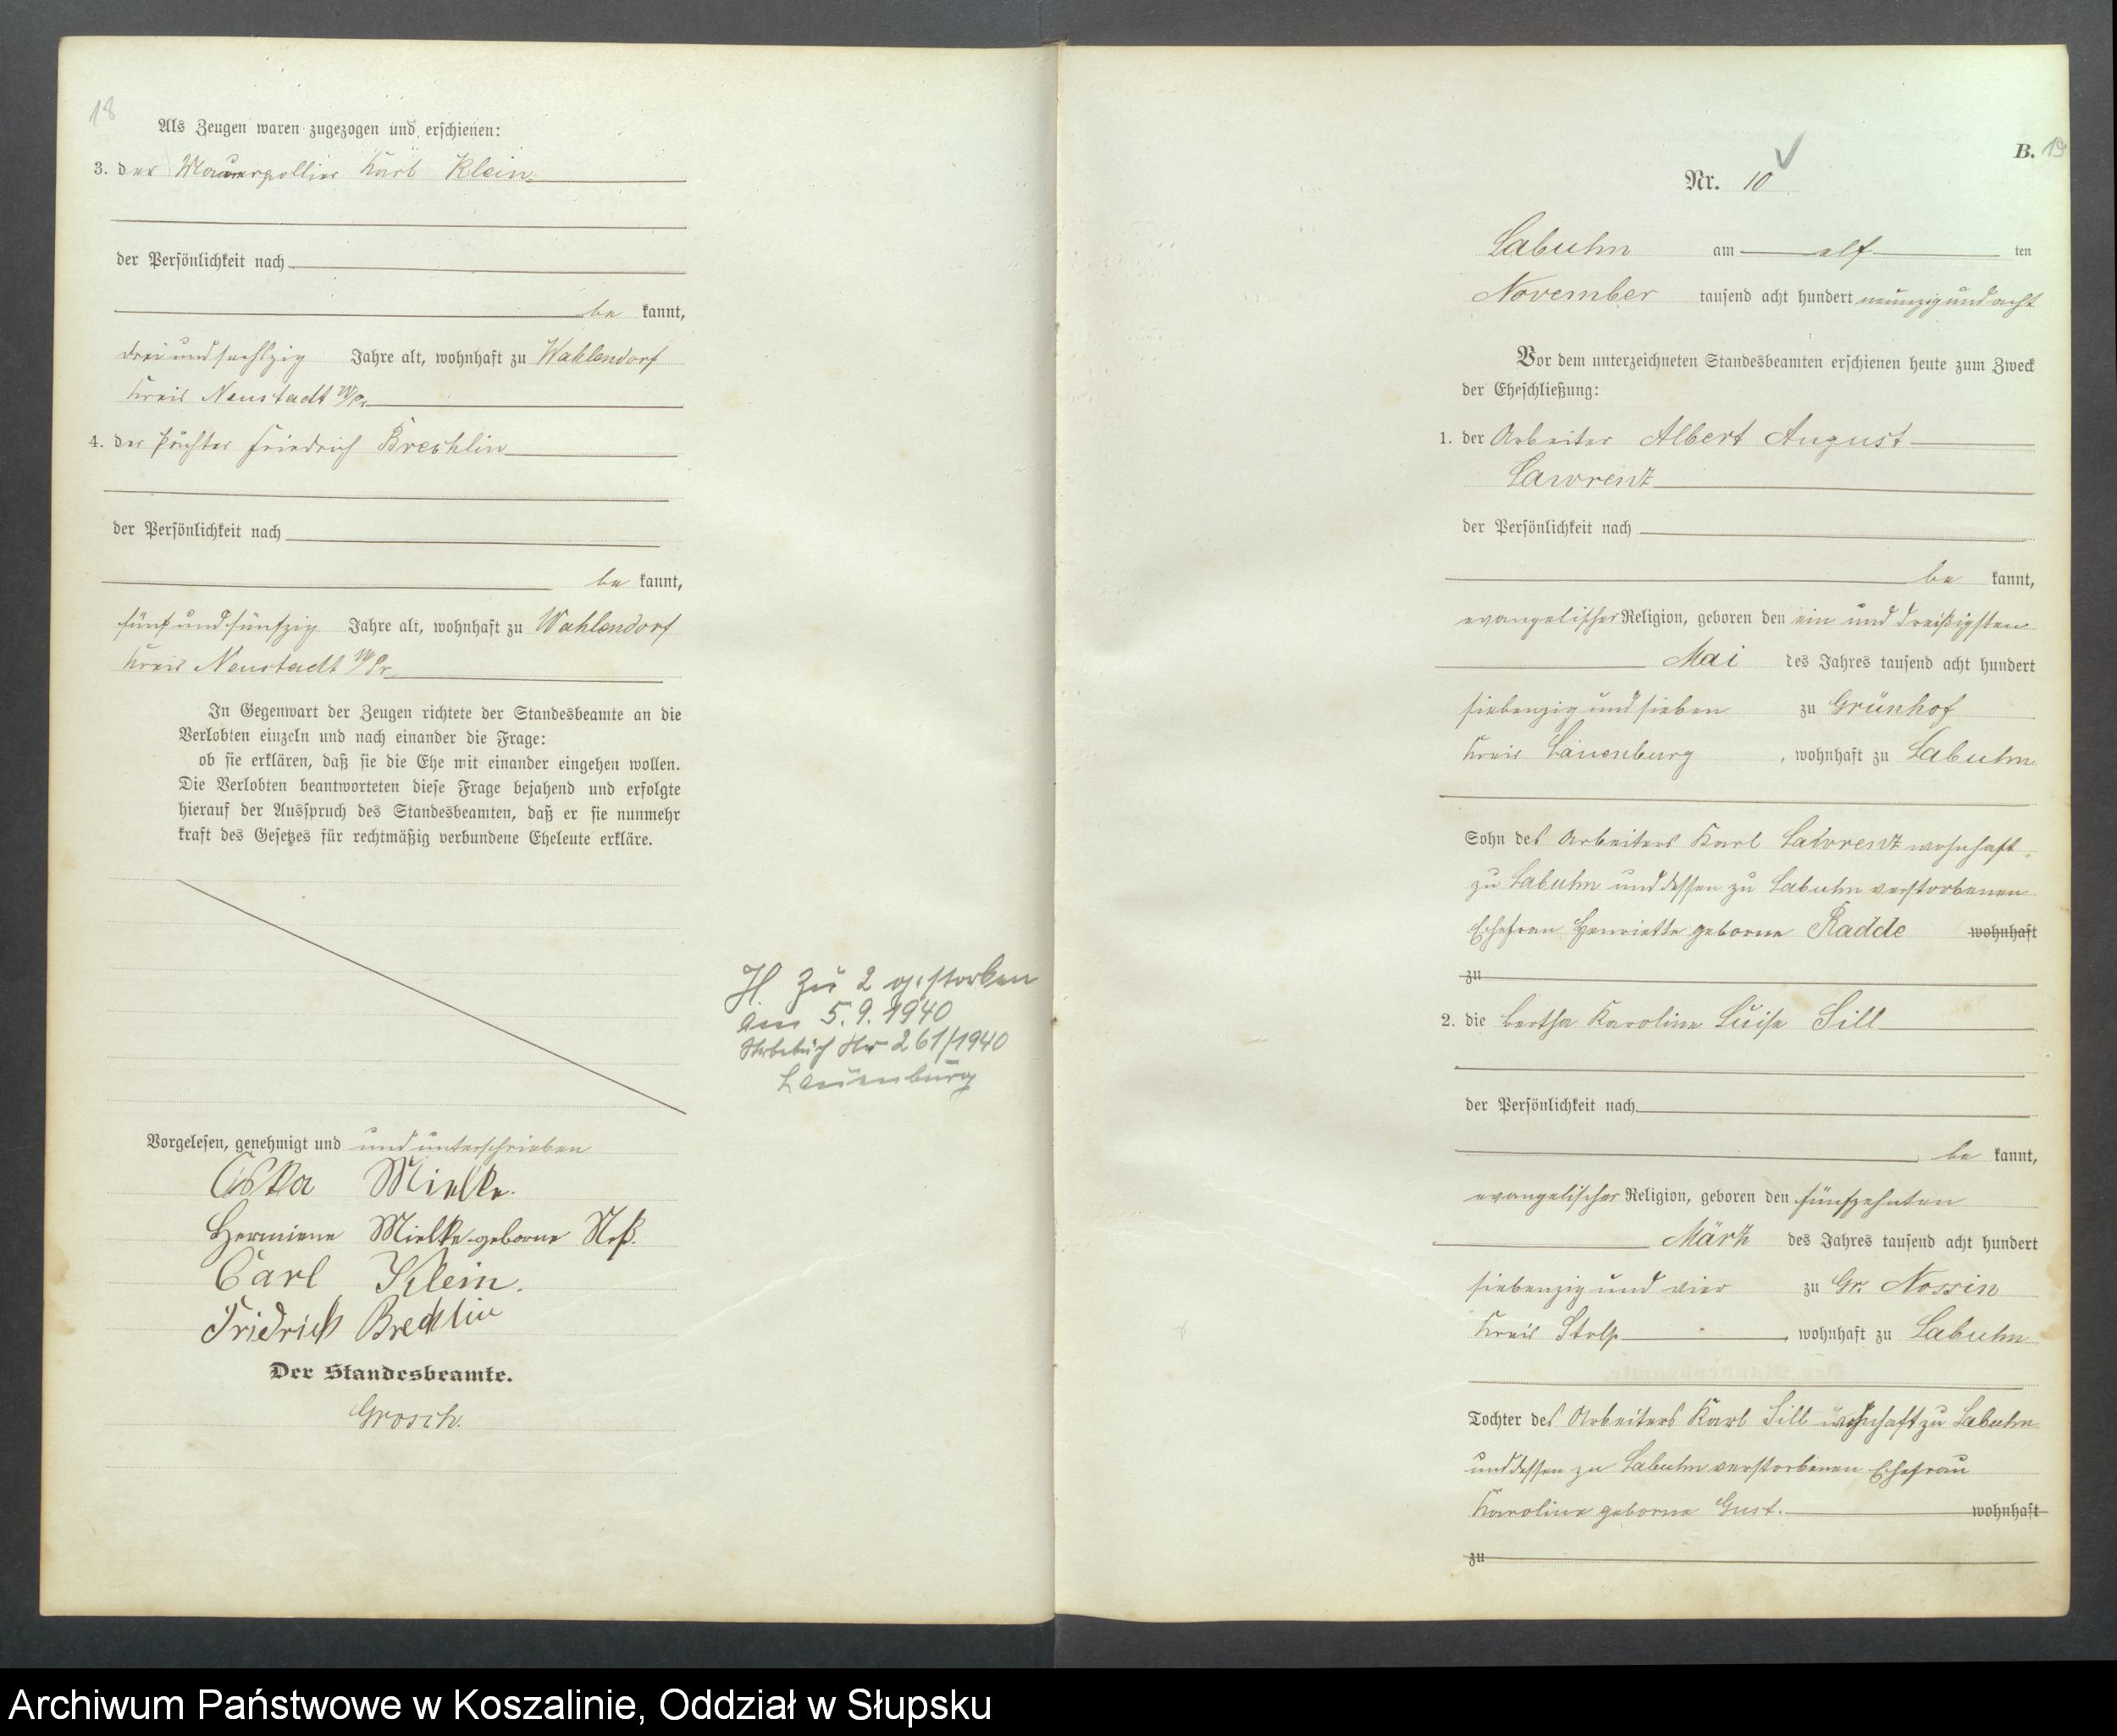 18
Als Zeugen waren zugezogen und erschienen:
3. der Maurerpollier Karl Klein
der Persönlichkeit nach
be kannt,
drei und sechszig Jahre alt, wohnhaft zu Wahlendorf
Kreis Neustadt W/Pr.
4. der Pächter Friedrich Brechlin
der Persönlichkeit nach
be kannt,
fünf und fünfzig Jahre alt, wohnhaft zu Wahlendorf
Kreis Neustadt W/Pr.
In Gegenwart der Zeugen richtete der Standesbeamte an die
Verlobten einzeln und nach einander die Frage:
ob sie erklären, daß sie die Ehe mit einander eingehen wollen.
Die Verlobten beantworteten diese Frage bejahend und erfolgte
hierauf der Ausspruch des Standesbeamten, daß er sie nunmehr
kraft des Gesetzes für rechtmäßig verbundene Eheleute erkläre.
H. Zu 2 gestorben
am 5.9.1940
Sterbebuch Nr 261/1940
Lauenburg
Vorgelesen, genehmigt und und unterschrieben
Mielke.
Hermiene Mielke geborne
Carl Klein.
Fridrich Brechlin
Der Standesbeamte.
Grosch.
B. 19
Nr. 10
Labuhn am elf ten
November tausend acht hundert neunzig und acht
Vor dem unterzeichneten Standesbeamten erschienen heute zum Zweck
der Eheschließung:
1. der Arbeiter Albert August
Lawrenz
der Persönlichkeit nach
be kannt,
evangelischer Religion, geboren den ein und dreißigsten
Mai des Jahres tausend acht hundert
siebenzig und sieben zu Grünhof
Kreis Lauenburg, wohnhaft zu Labuhn
Sohn des Arbeiters Karl Lawrenz wohnhaft
zu Labuhn und dessen zu Labuhn verstorbenen
Ehefrau Henriette geborne Radde wohnhaft
zu
2. die Bertha Karoline Luise Sill
der Persönlichkeit nach
be kannt,
evangelischer Religion, geboren den fünfzehnten
März des Jahres tausend acht hundert
siebenzig und vier zu Gr. Nossin
Kreis Stolp, wohnhaft zu Labuhn
Tochter des Arbeiters Karl Sill wohnhaft zu Labuhn
und dessen zu Labuhn verstorbenen Ehefrau
Karoline geborne Gust. wohnhaft
zu
Archiwum Państwowe w Koszalinie, Oddział w Słupsku